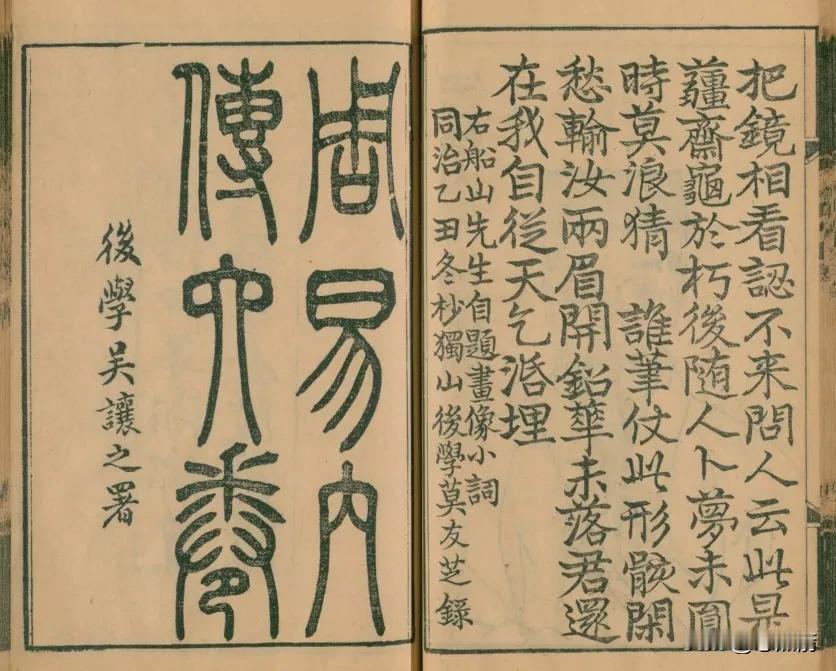 把鏡相看認不来問人云此是
薑齋龜於朽後随人卜夢未圓
時莫浪猜　誰筆仗此形骸閑
愁輸汝兩眉開鉛華未落君還
在我自從天乞活埋
右船山先生自題畫像小詞
同治乙丑冬杪獨山後學莫友芝錄
周易内
傳六卷
後學吴讓之署